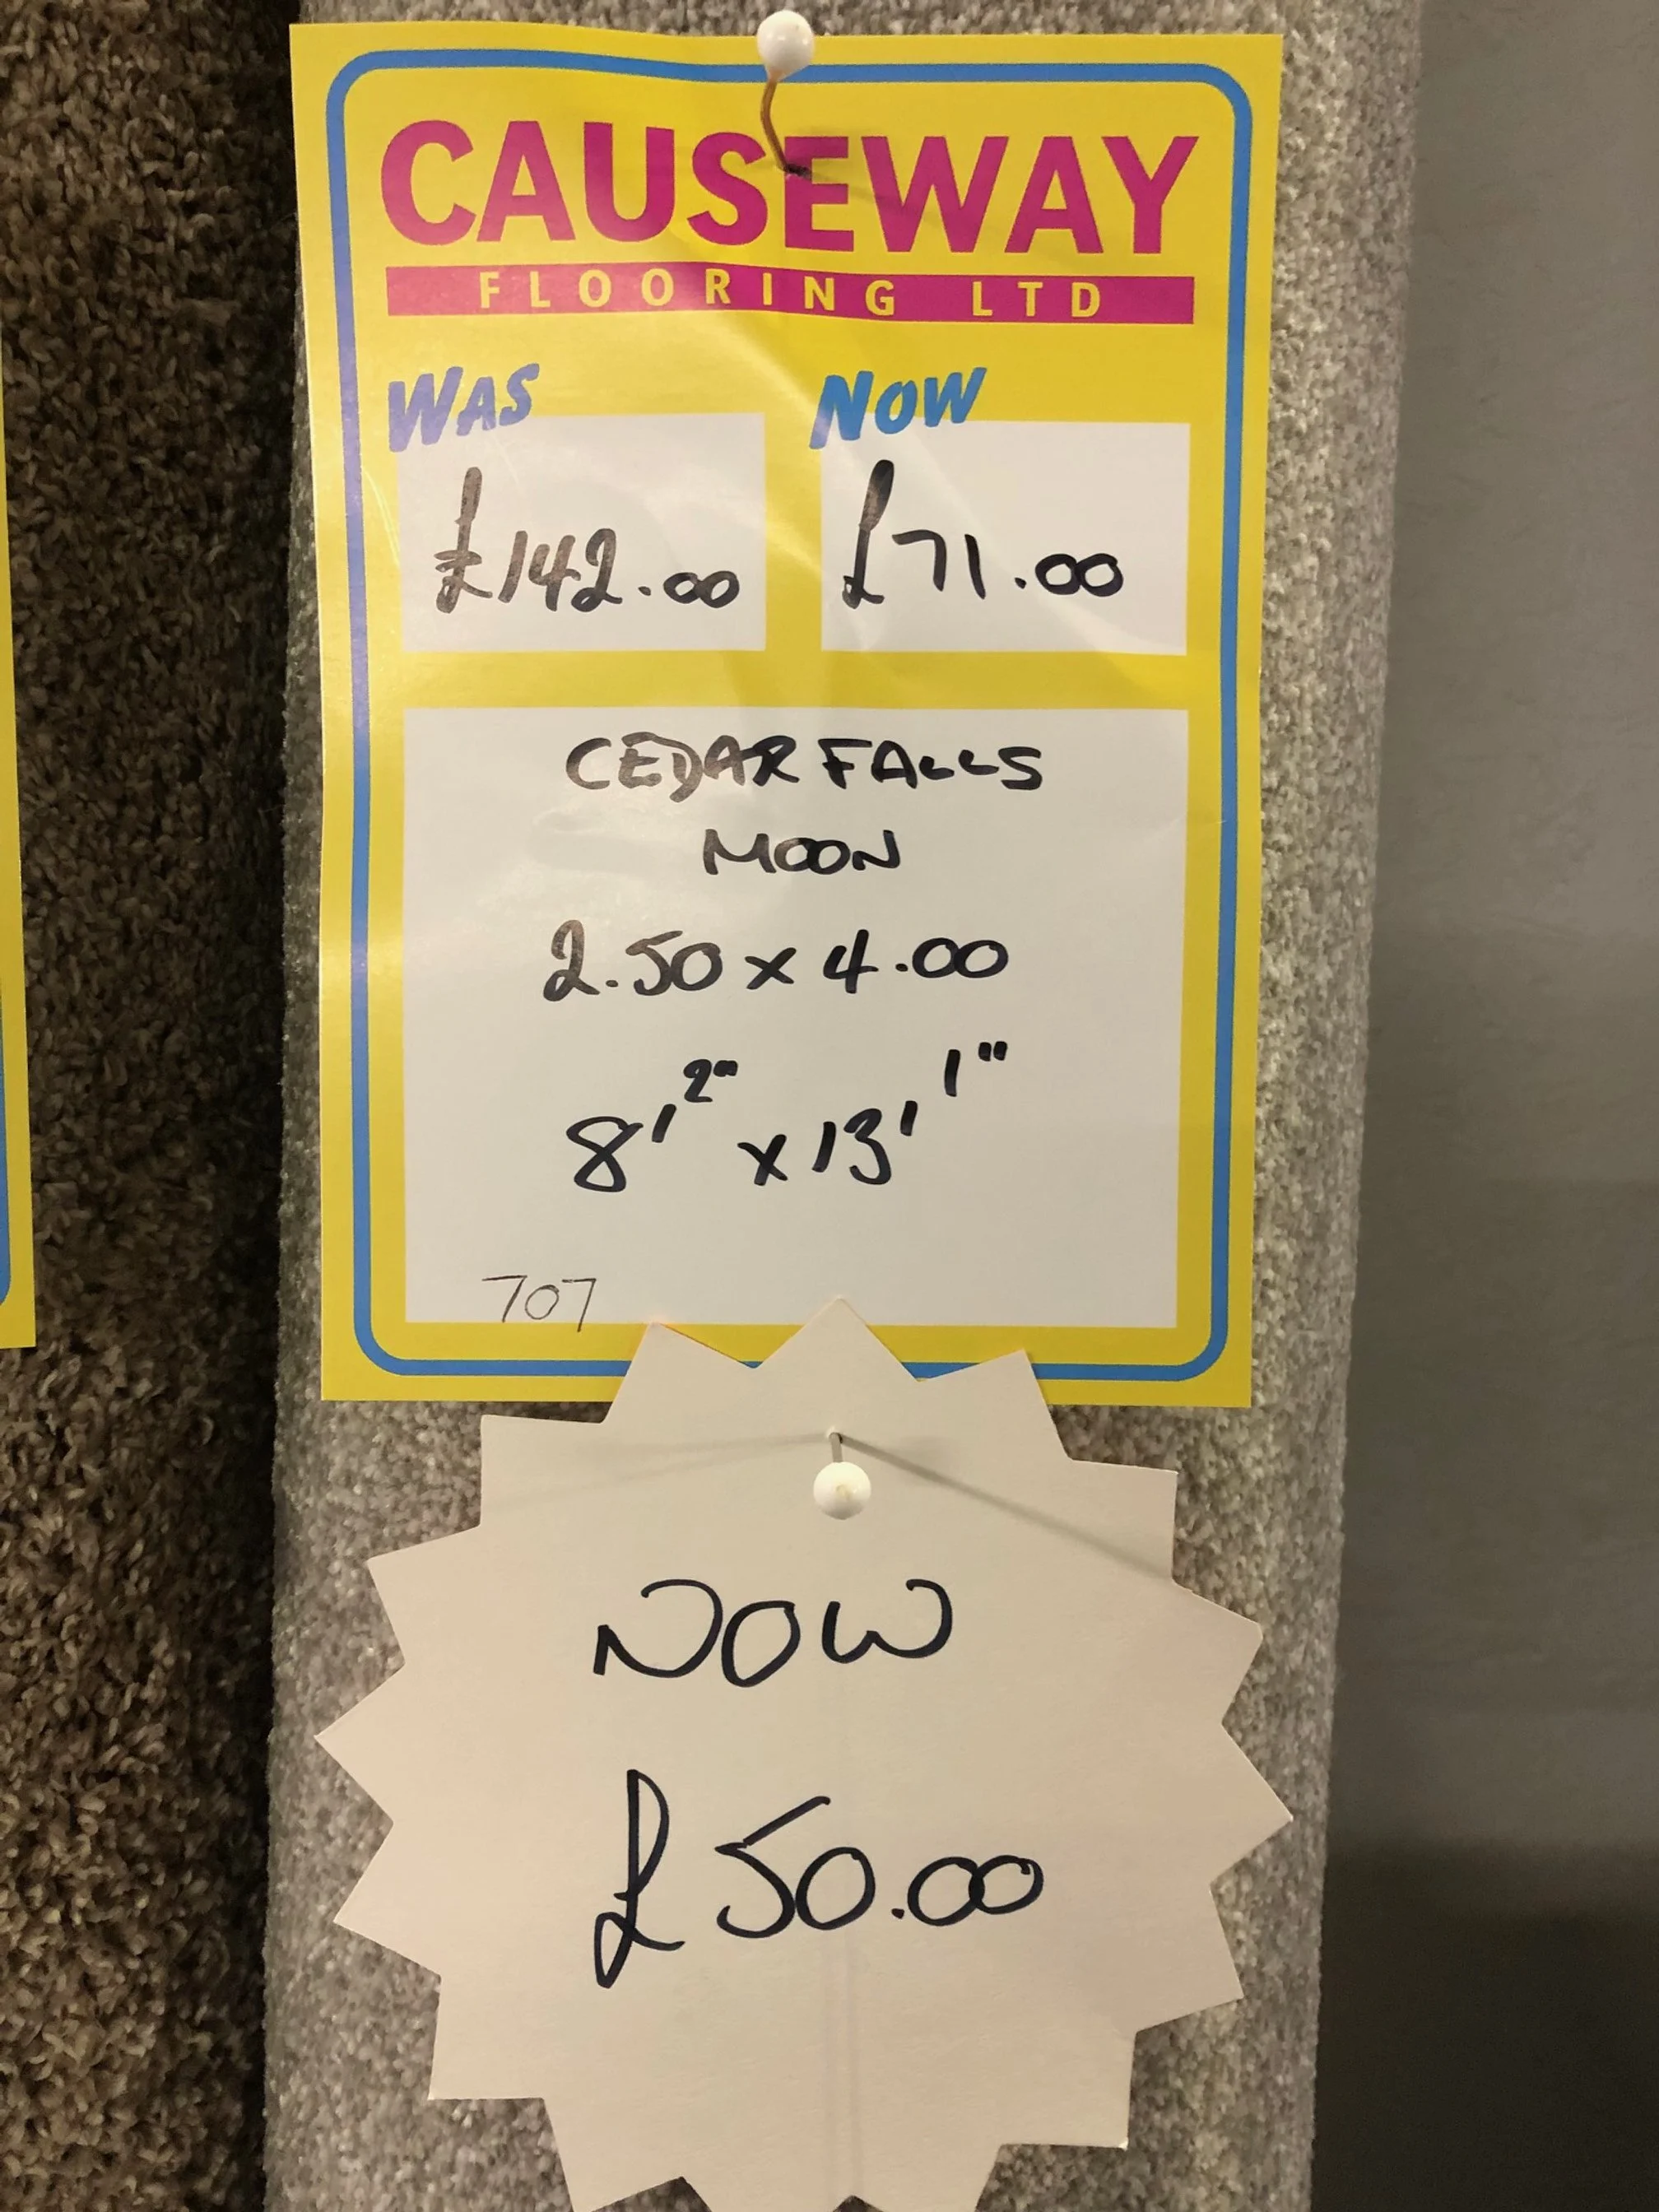 CAUSEWAY
FLOORING LTD
WAS NOW
£142.00 £71.00
CEDAR FALLS
MOON
2.50 x 4.00
8'2" x 13'1"
707
NOW
£50.00